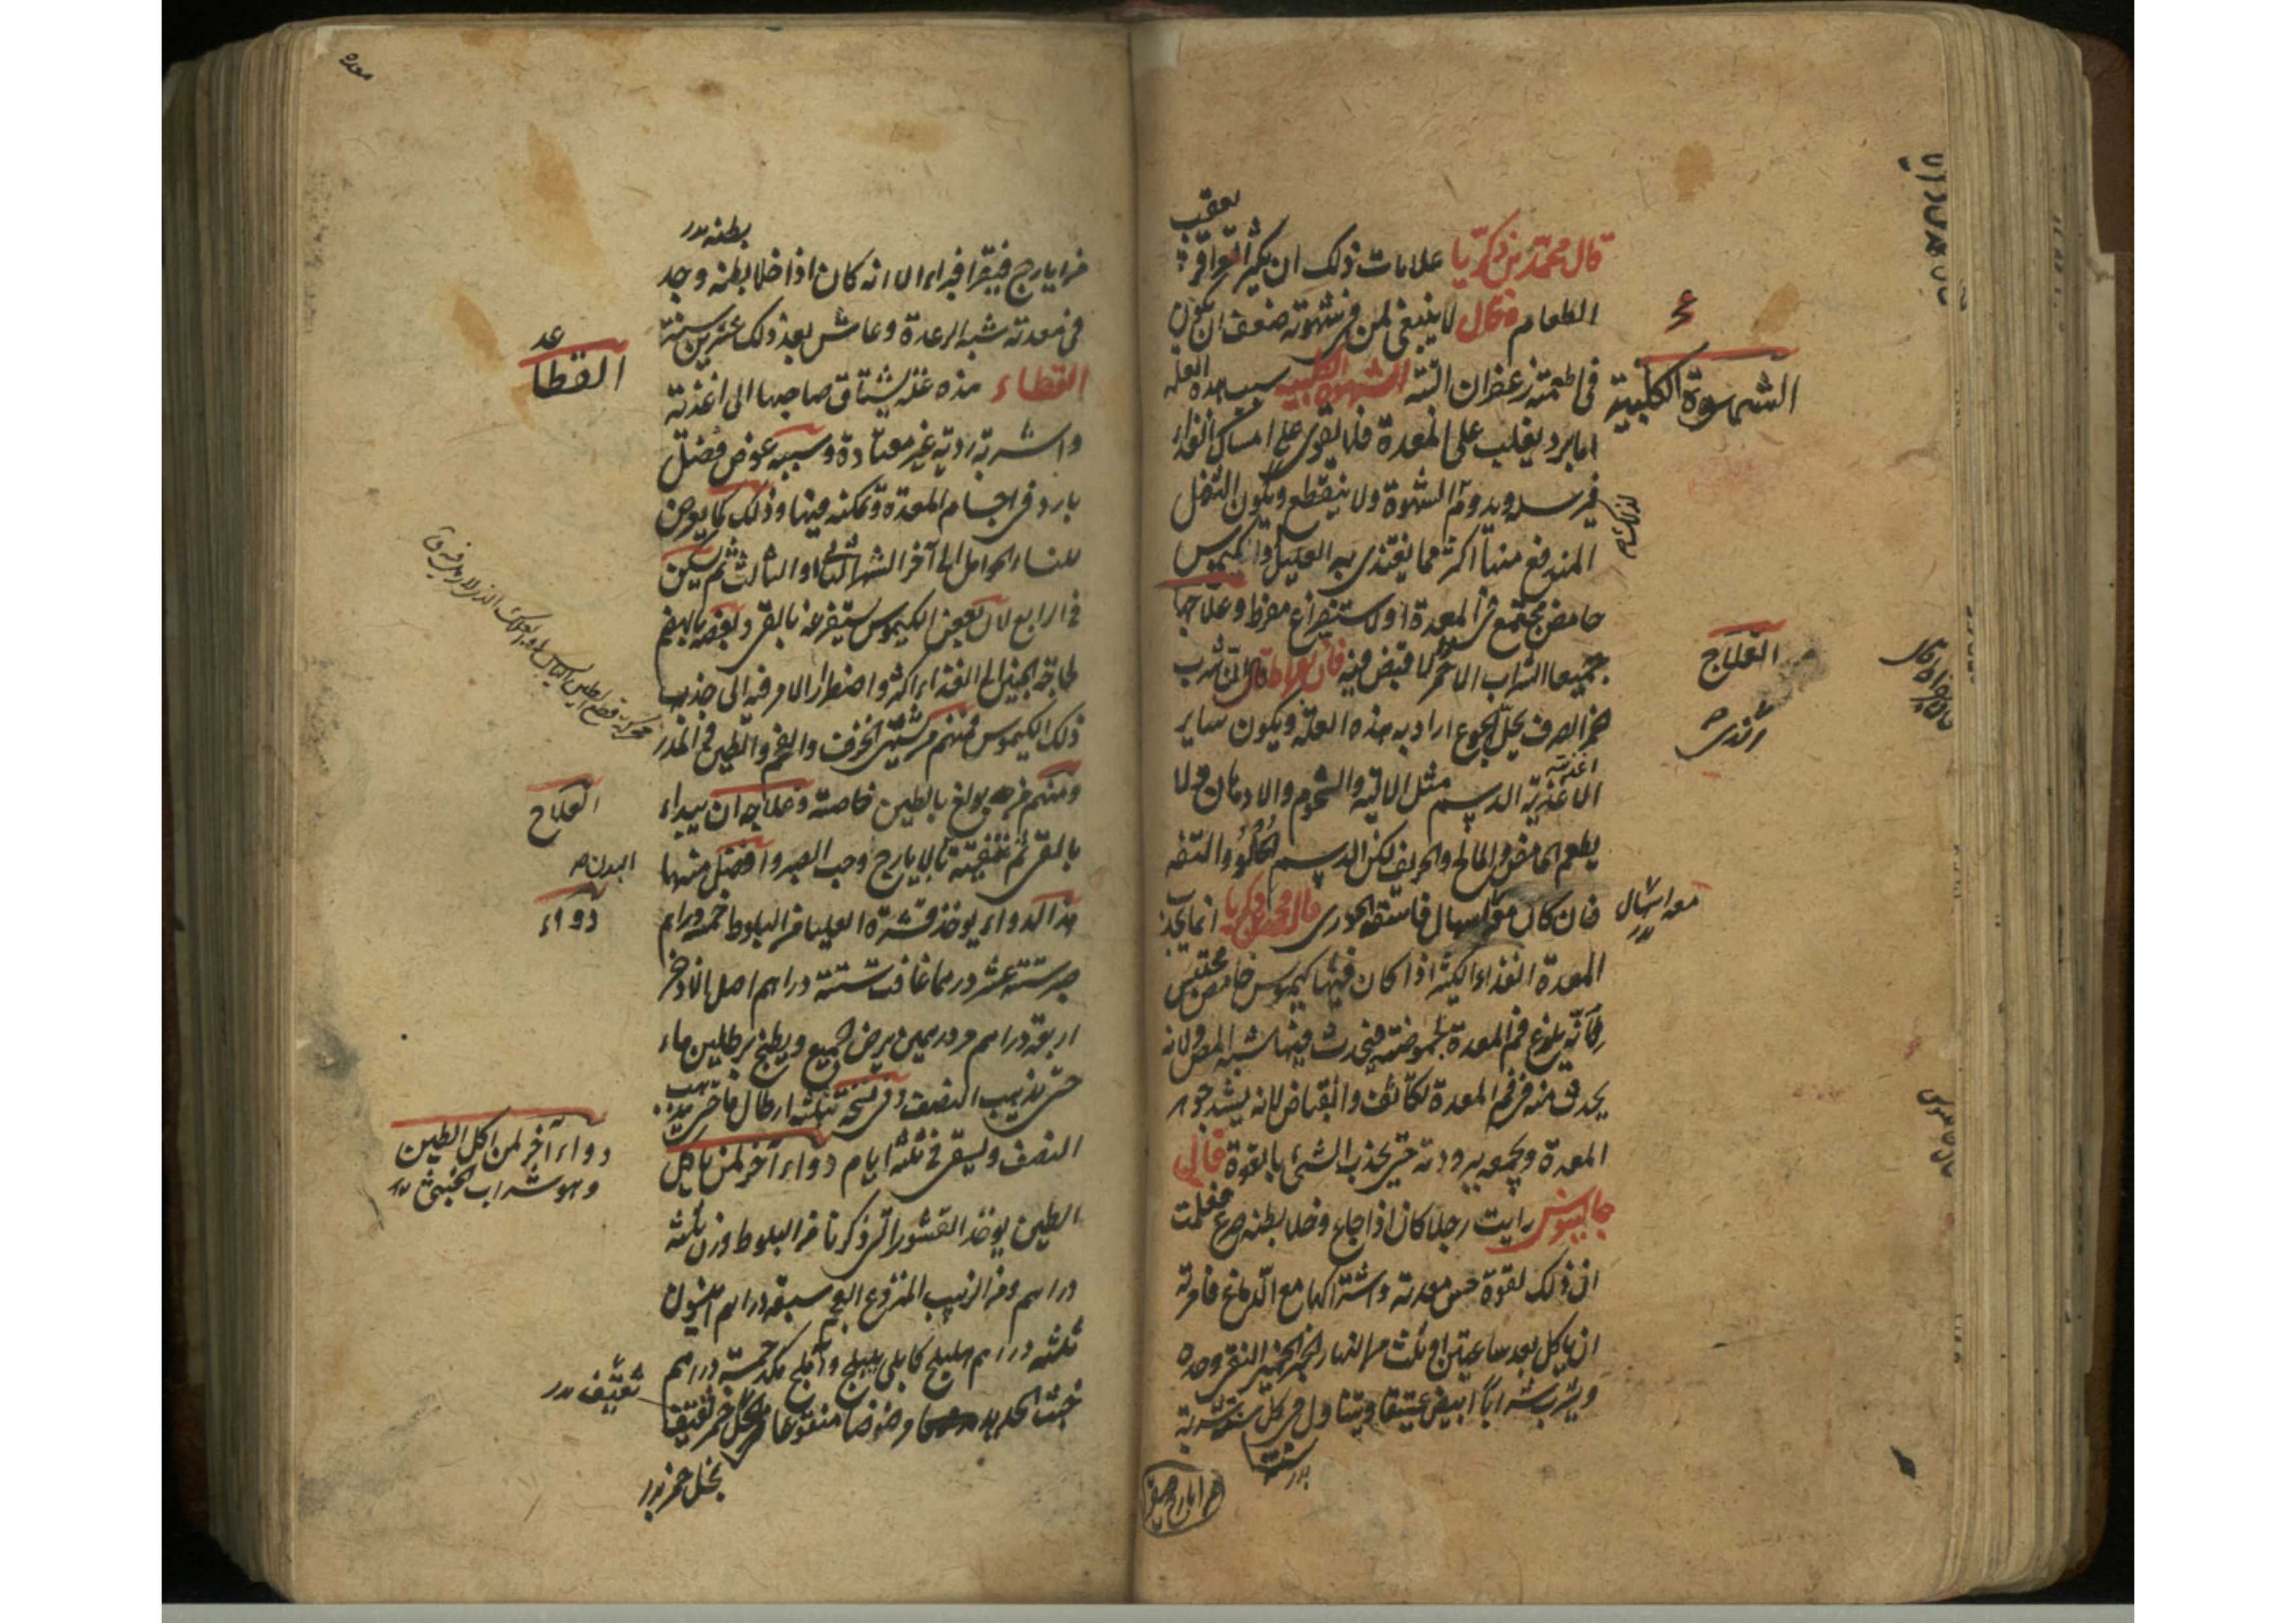 يعقب
قال محمد بن زكريا علامات ذلك ان يكثر القراقر
الطعام وقال لا ينبغي لمن في شهوته ضعف ان يكون
في اطعمته زعفران البتة الشهوة الكلبية سبب هذه العلة
اما برد يغلب على المعدة فلا يقوى على امساك الغذاء
ويدوم الشهوة ولا ينقطع ويكون الثفل
المندفع منها اكثر مما يغتذى به العليل او كيموس
حامض مجتمع في المعدة او استفراغ مفرط وعلاجها
جميعا الشراب الاحمر لا قبض فيه فان بقراط قال ان شرب
خمر الصرف يحل الجوع اراد به هذه العلة ويكون ساير
اغذيته
الاغذية الدسم مثل الالية والشحوم والادهان ولا
يطعم الحامض والمالح والحريف لكن الدسم الحلو والتفه
فان كان معه اسهال فاسقه الحوري قال محمد بن زكريا انما يجذب
المعدة الغذاء الكثير اذا كان فيها كيموس حامض محتبس
لانه يلذع فم المعدة بحموضته فيحدث فيها شبه المص ولانه
يحدث منه في فم المعدة تكاثف وانقباض لانه يشد جوهر
المعدة ويجمعه ببرودته حتى يجذب الشئ بالقوة قال
جالينوس رايت رجلا كان اذا جاع وخلا بطنه صرع فعلمت
ان ذلك لقوة حس معدته واشتراكها مع الدماغ فامرته
ان ياكل بعد ساعتين او ثلث من النهار الخبز الخمير النقي وحده
ويشرب شرابا ابيض عتيقا ويتناول في كل سنة شربة
سنة
من ايارج فيقرا
الشهوة الكلبية
العلاج
معه اسهال
بطنه
من ايارج فيقرا فبراء الا انه كان اذا خلا بطنه وجد
في معدته شبه الرعدة وعاش بعد ذلك عشرين سنة
القطاء هذه علة يشتاق صاحبها الى اغذية
واشربة ردية غير معتادة وسببه عرض فضل
بارد في اجسام المعدة وتمكنه فيها وذلك كما يعرض
للنساء الحوامل الى آخر الشهر الثاني او الثالث ثم يسكن
في الرابع لان بعض الكيموس يستفرغ بالقئ وبعضه بالهضم
لحاجة الجنين الى الغذاء اكثر واضطرار الامر فيه الى جذب
ذلك الكيموس فمنهم من يشتهي الخزف والفحم والطين في القدر
ومنهم من يولع بالطين خاصة وعلاجه ان يبداء
بالقئ ثم تنقيته بالايارج وحب الصبر وافضل منها
هذا الدواء يوخذ قشرة العليا من البلوط خمسة دراهم
صبر ستة عشر درهما غافت ستة دراهم اصل الاذخر
اربعة دراهم ودرهمين يرض الجميع ويطبخ برطلين ماء
حتى يذهب النصف وفي نسخة ثلثة ارطال ماء حتى يذهب
النصف ويسقى في ثلثة ايام دواء آخر لمن ياكل
الطين يوخذ القشور التي ذكرنا من البلوط وزن ثلثة
دراهم ومن الزبيب المنزوع العجم سبعة دراهم انيسون
ثلثة دراهم اهليلج كابلي بليلج واملج مكد خمسة دراهم
خبث الحديد مرضوضا منقوعا في خل خمر ثقيف
القطا
العلاج
البدن
دواء
دواء آخر لمن اكل الطين
وهو شراب الخبث
ثقيف
بخل خمر
معده